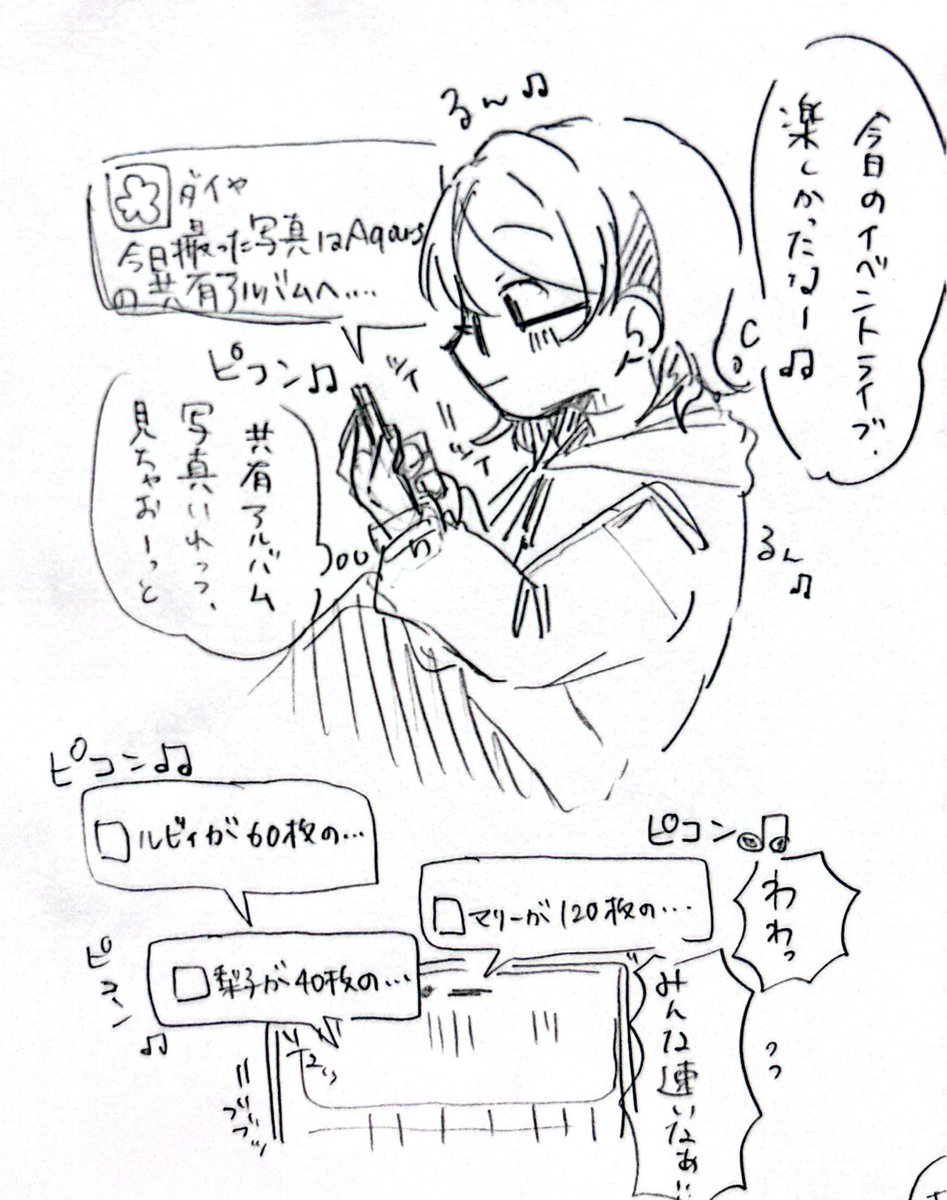 今日のイベントライブ、
楽しかったねー♫
るん♫
ダイヤ
今日撮った写真はAqours
の共有アルバムへ....
ピコン♫
ツイ
ツイ
共有アルバム
写真いれっつ、
見ちゃおーっと
るん♫
ピコン♫
ルビィが60枚の...
ピコン♫
マリーが120枚の...
わわっ
ピコーン♫
梨子が40枚の...
みんな速いなぁ!!
ブブブッ